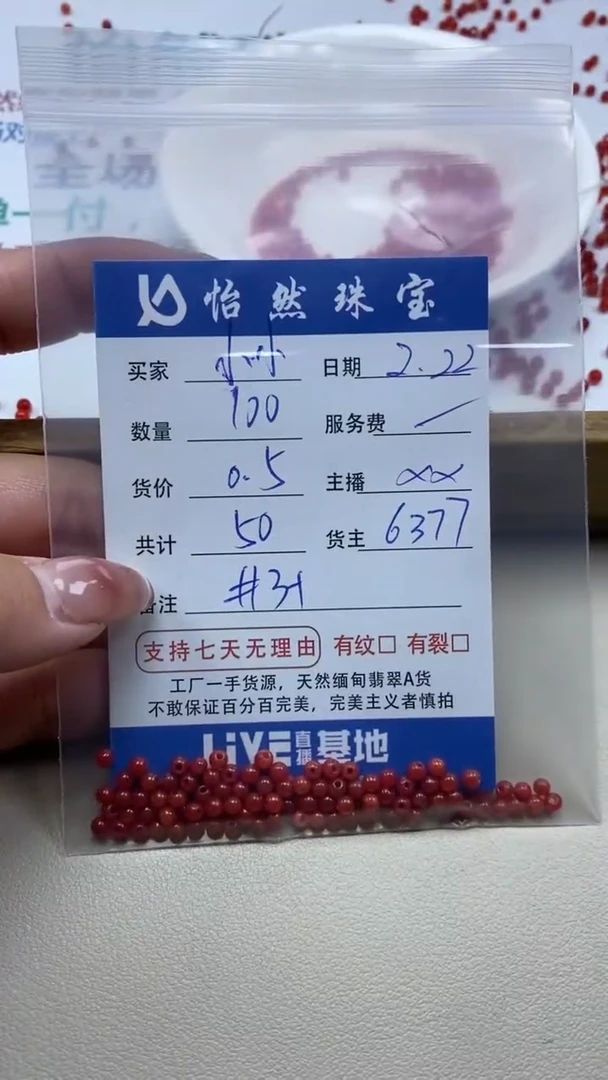 怡然珠宝
买家 小小 日期 2.22
数量 100 服务费 /
货价 0.5 主播 xx
共计 50 货主 6377
备注
支持七天无理由 有纹□ 有裂□
工厂一手货源，天然缅甸翡翠A货
不敢保证百分百完美，完美主义者慎拍
LiVE直播基地
全场
付，